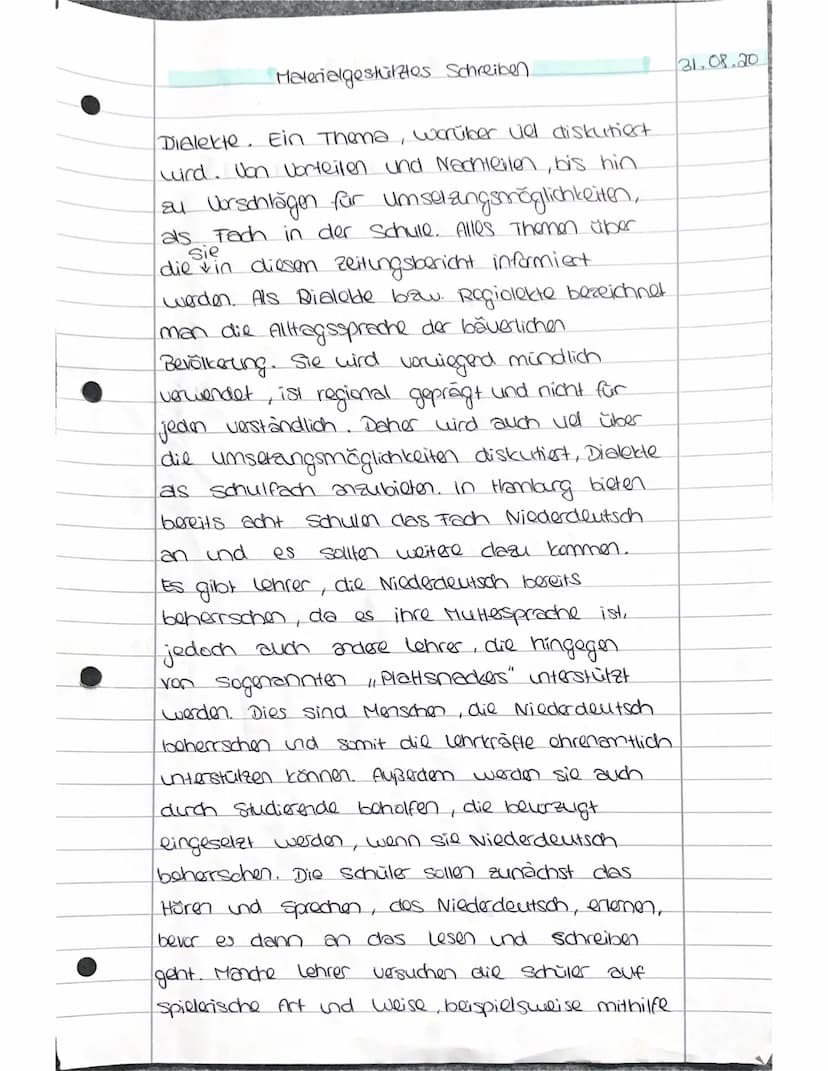 Materialgestütztes Schreiben
31.08.20
Dialekte. Ein Thema, worüber viel diskutiert
wird. Von Vorteilen und Nachteilen, bis hin
zu Vorschlägen für Umsetzungsmöglichkeiten,
als Fach in der Schule. Alles Themen über
die Sie in diesem Zeitungsbericht informiert
werden. Als Dialekte bzw. Regiolekte bezeichnet
man die Alltagssprache der bäuerlichen
Bevölkerung. Sie wird vorwiegend mündlich
verwendet, ist regional geprägt und nicht für
jeden verständlich. Daher wird auch viel über
die Umsetzungsmöglichkeiten diskutiert, Dialekte
als Schulfach anzubieten. In Hamburg bieten
bereits acht Schulen das Fach Niederdeutsch
an und es sollten weitere dazu kommen.
Es gibt Lehrer, die Niederdeutsch bereits
beherrschen, da es ihre Muttesprache ist,
jedoch auch andere Lehrer, die hingegen
von sogenannten „Plattsnackers" unterstützt
werden. Dies sind Menschen, die Niederdeutsch
beherrschen und somit die Lehrkräfte ehrenamtlich
unterstützen können. Außerdem werden sie auch
durch Studierende beholfen, die bevorzugt
eingesetzt werden, wenn sie Niederdeutsch
beherrschen. Die Schüler sollen zunächst das
Hören und Sprechen, des Niederdeutsch, erlernen,
bevor es dann an das Lesen und Schreiben
geht. Manche Lehrer versuchen die Schüler auf
spielerische Art und Weise, beispielsweise mithilfe